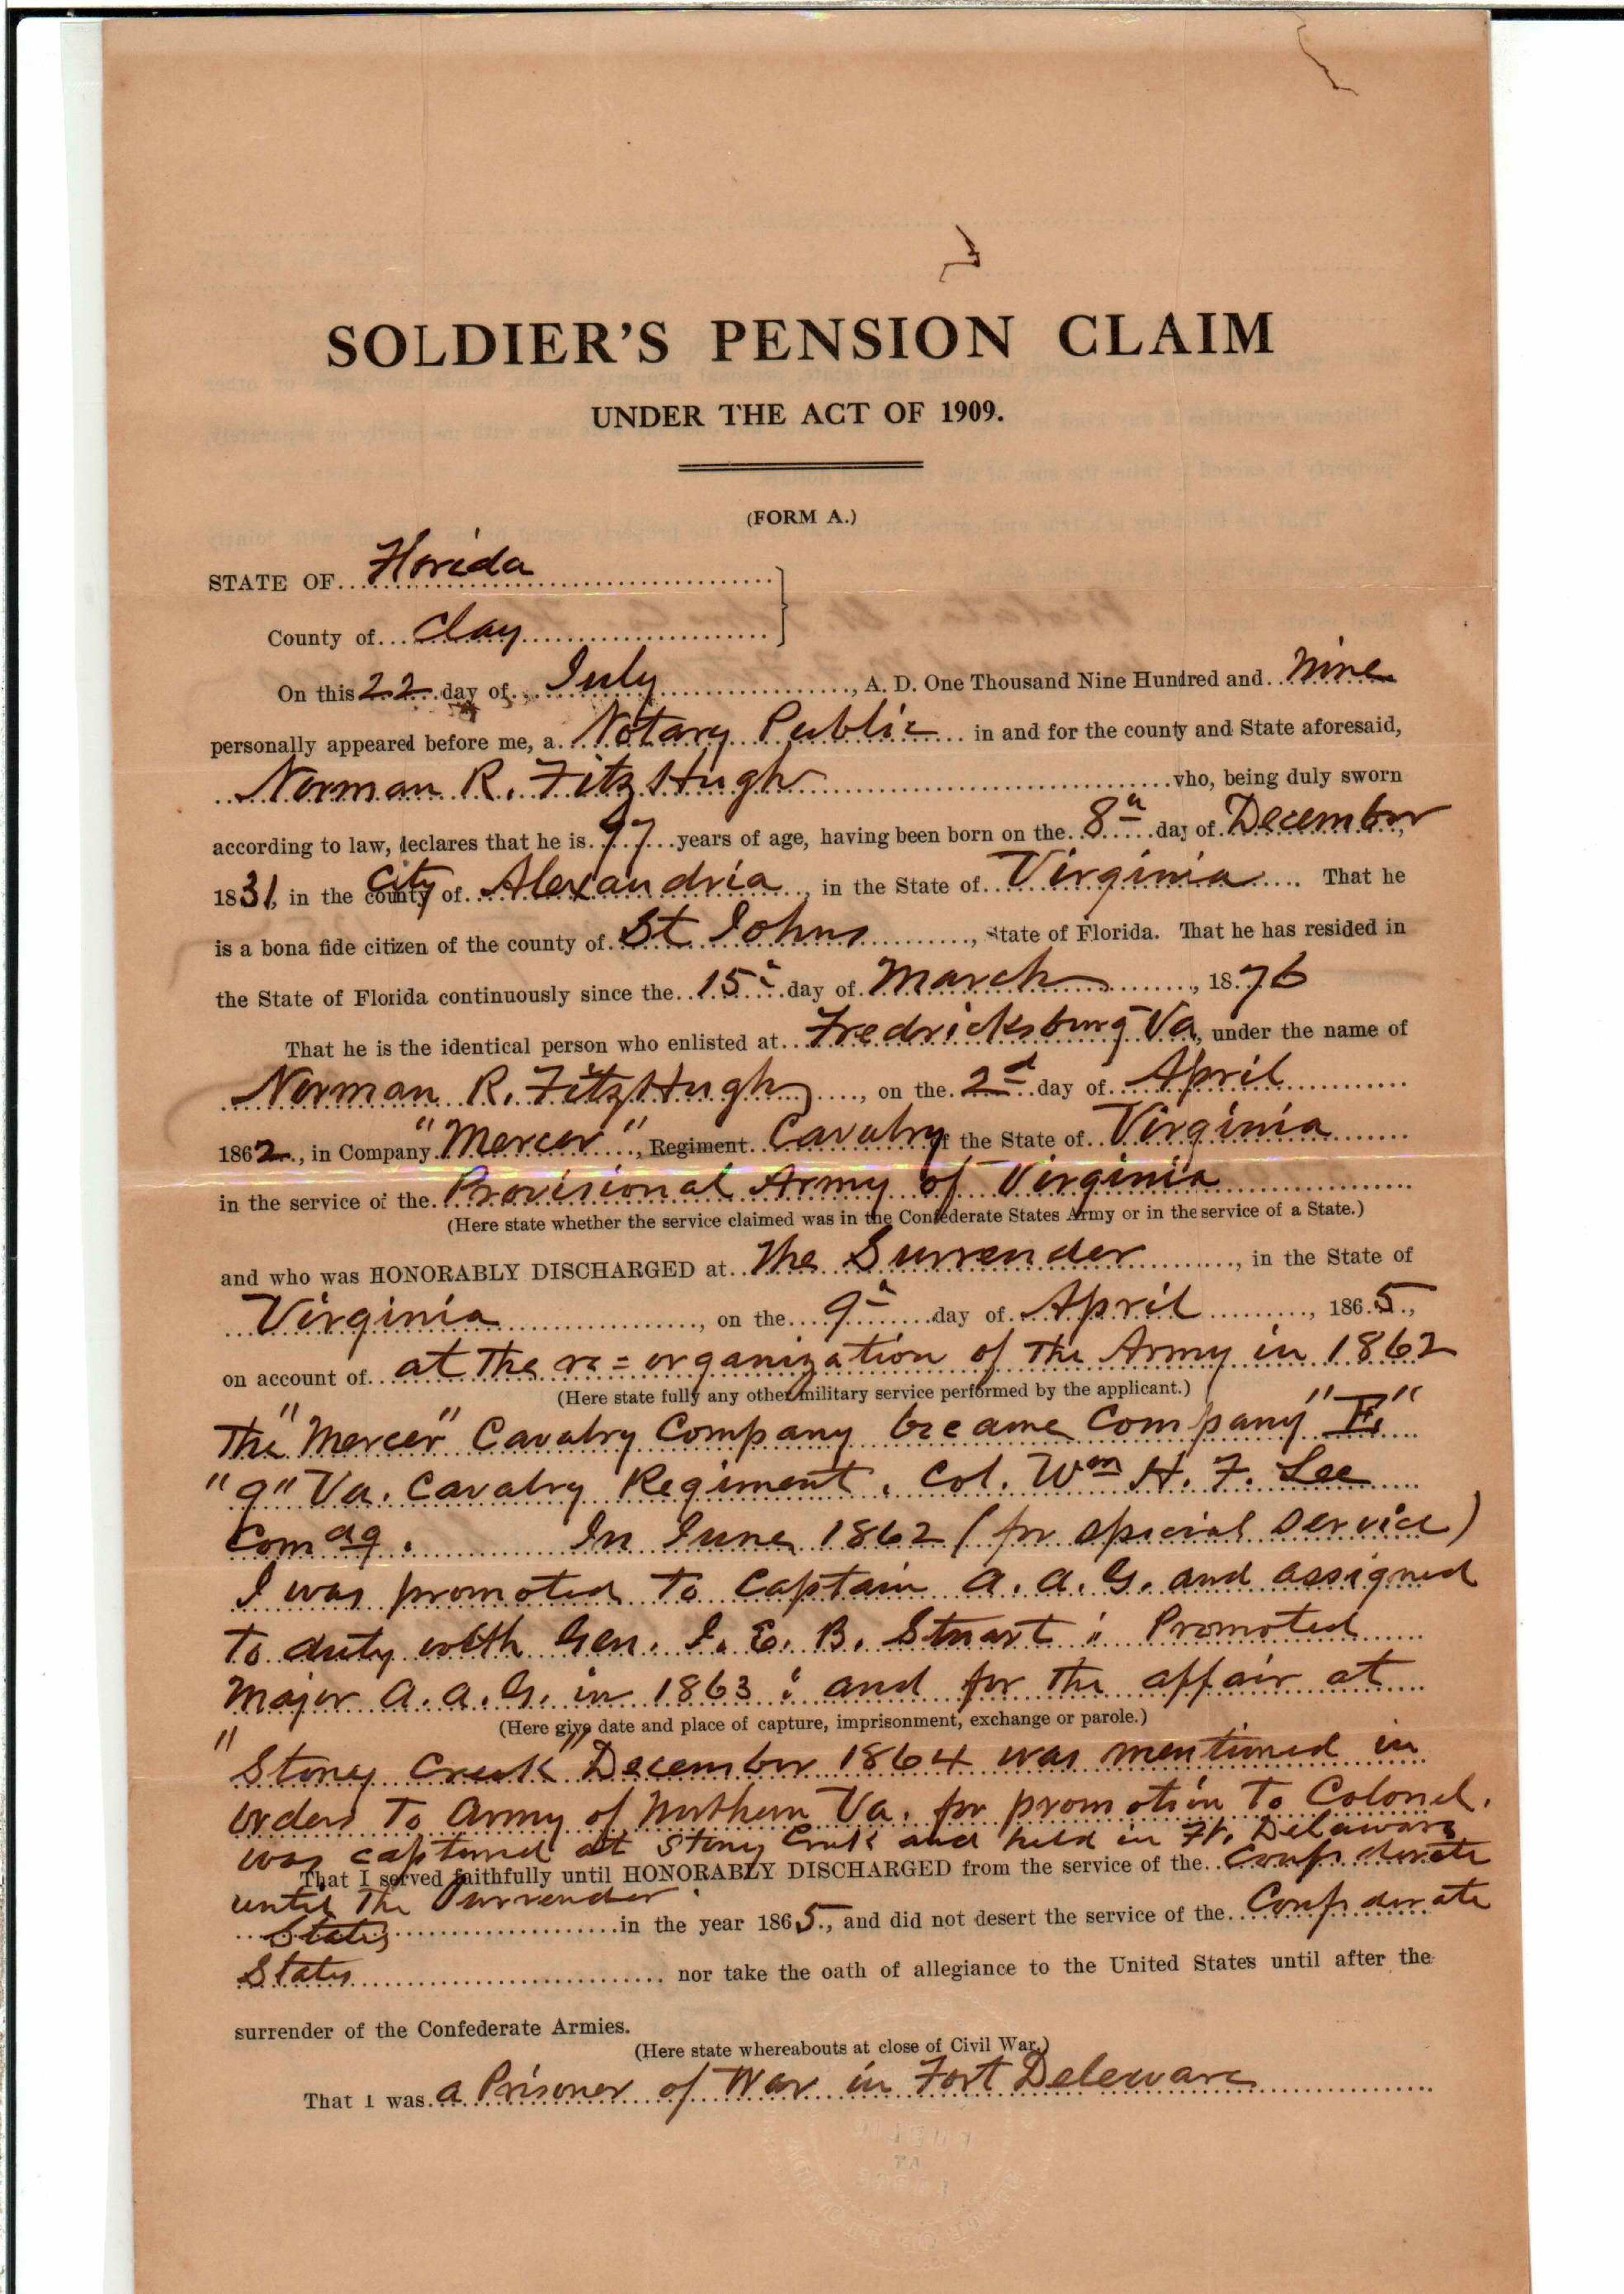 SOLDIER'S PENSION CLAIM
UNDER THE ACT OF 1909.
(FORM A.)
STATE OF Florida
County of Clay
On this 22 day of July, A. D. One Thousand Nine Hundred and Nine
personally appeared before me, a Notary Public in and for the county and State aforesaid,
Norman R. FitzHugh who, being duly sworn
according to law, declares that he is 77 years of age, having been born on the 8" day of December,
1831, in the county City of Alexandria, in the State of Virginia. That he
is a bona fide citizen of the county of St Johns, State of Florida. That he has resided in
the State of Florida continuously since the 15" day of March, 1876
That he is the identical person who enlisted at Fredricksburg Va, under the name of
Norman R. FitzHugh, on the 2d day of April
1862, in Company "Mercer", Regiment Cavalry of the State of Virginia
in the service of the Provisional Army of Virginia
(Here state whether the service claimed was in the Confederate States Army or in the service of a State.)
and who was HONORABLY DISCHARGED at The Surrender, in the State of
Virginia, on the 9" day of April, 1865,
on account of at the re=organization of the Army in 1862
(Here state fully any other military service performed by the applicant.)
The "Mercer" Cavalry Company became Company "F."
"9" Va. Cavalry Regiment. Col. Wm H. F. Lee
Comdg. In June 1862 (for special service)
I was promoted to Captain A. A. G. and assigned
to duty with Gen. J. E. B. Stuart: Promoted
Major A. A. G. in 1863: and for the affair at
(Here give date and place of capture, imprisonment, exchange or parole.)
"Stoney Creek" December 1864 was mentioned in
orders to Army of Northern Va. for promotion to Colonel.
was captured at Stony Creek and held in Ft. Delaware
That I served faithfully until HONORABLY DISCHARGED from the service of the Confederate
until the Surrender.
States in the year 1865, and did not desert the service of the Confederate
States nor take the oath of allegiance to the United States until after the
surrender of the Confederate Armies.
(Here state whereabouts at close of Civil War.)
That I was a Prisoner of War in Fort Deleware